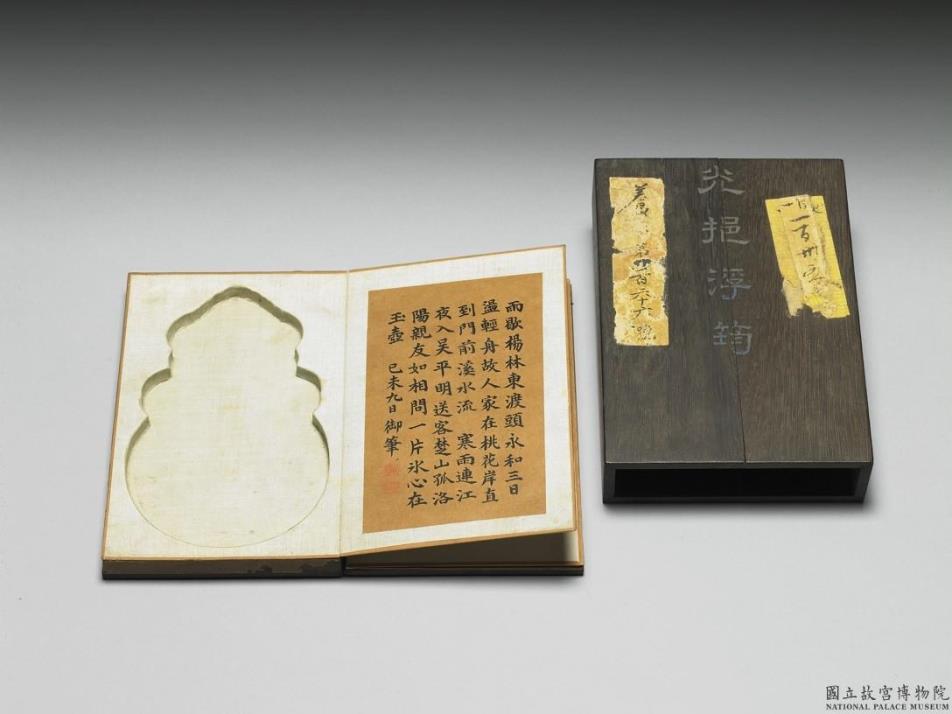 雨歇楊林東渡頭永和三日
盪輕舟故人家在桃花岸直
到門前溪水流 寒雨連江
夜入吳平明送客楚山孤洛
陽親友如相問一片氷心在
玉壺 己未九日御筆
光挹浮筠
一百卅
國立故宮博物院
NATIONAL PALACE MUSEUM